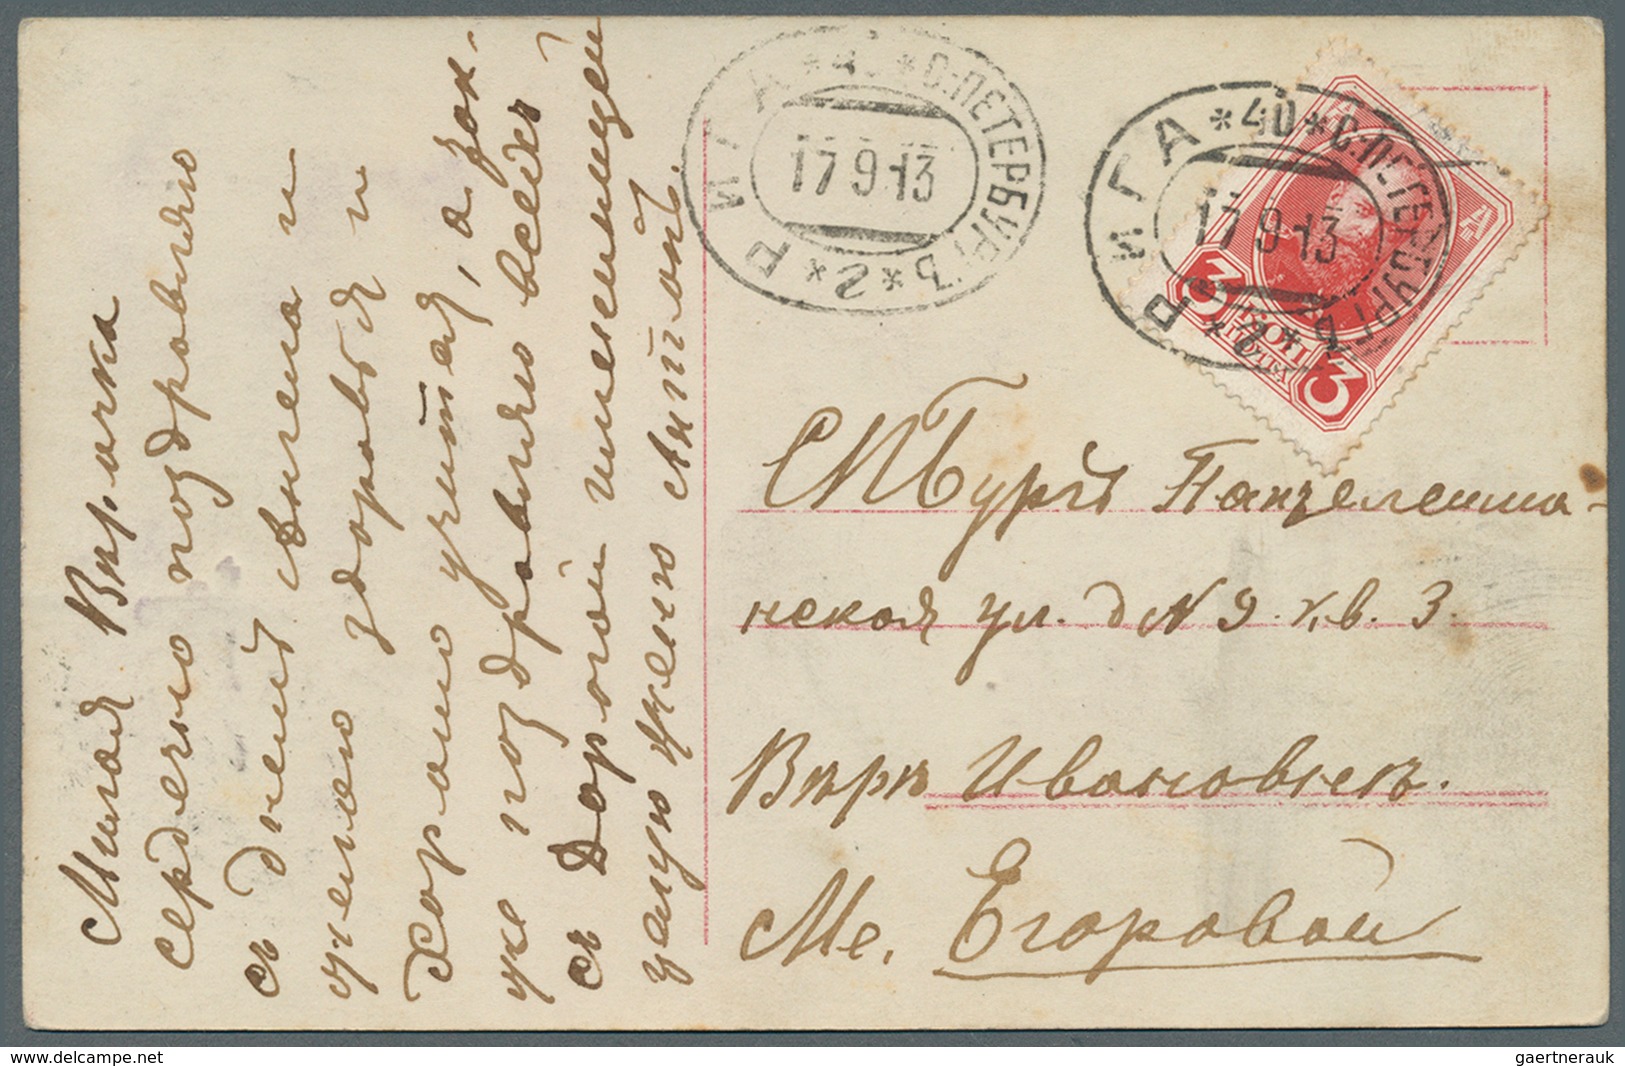 Милая Вѣрочка
сердечно поздравляю
съ днемъ Ангела и
желаю здоровья и
хорошо учится, а так-
же поздравляю всѣхъ
съ дорогой именинницей
цалую жено Антонъ.
РИГА *40* С.ПЕТЕРБУРГЪ *2*
17 9 13
РИГА *40* С.ПЕТЕРБУРГЪ *2*
17 9 13
3 КОП 3
СПБургъ Пантелеимо-
нская ул. д N 9. кв. 3.
Вѣрѣ Ивановнѣ.
Ме. Егоровой
www.delcampe.net
gaertnerauk